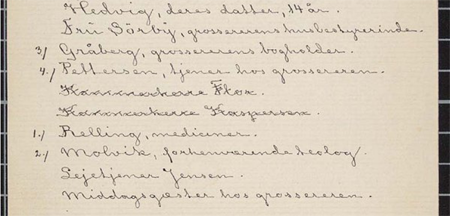 Hedvig, deres datter, 14 år.
Fru Sörby, grossererens husbestyrerinde.
3/ Gråberg, grossererens bogholder.
4/ Pettersen, tjener hos grossereren.
Kammerherre Flor.
Kammerherre Kaspersen.
1./ Relling, mediciner.
2/ Molvik, forhenværende teolog.
Lejetjener Jensen.
Middagsgæster hos grossereren.